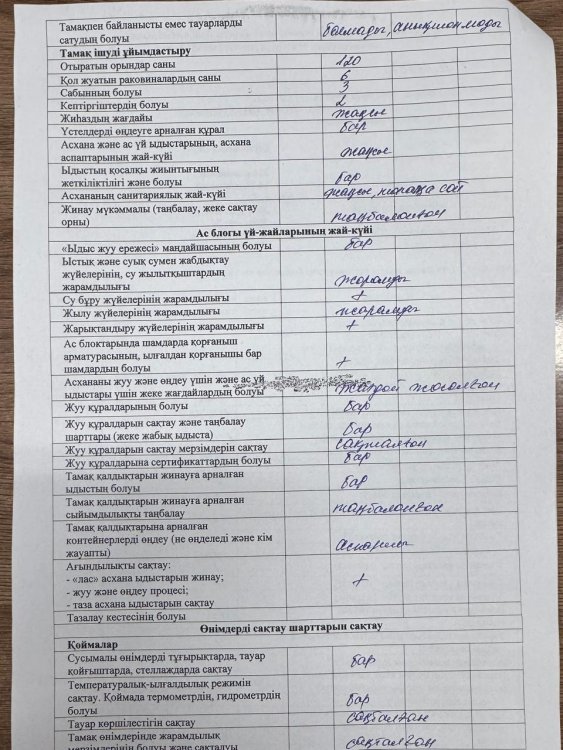 Тамақпен байланысты емес тауарларды болмады, анықталмады
сатудың болуы
Тамақ ішуді ұйымдастыру
Отыратын орындар саны 120
Қол жуатын раковиналардың саны 6
Сабынның болуы 3
Кептіргіштердің болуы 2
Жиһаздың жағдайы жақсы
Үстелдерді өңдеуге арналған құрал бар
Асхана және ас үй ыдыстарының, асхана
аспаптарының жай-күйі жақсы
Ыдыстың қосалқы жиынтығының
жеткіліктілігі және болуы бар
Асхананың санитариялық жай-күйі жақсы, талапқа сай
Жинау мүкәммалы (таңбалау, жеке сақтау
орны) таңбаланған
Ас блогы үй-жайларының жай-күйі
«Ыдыс жуу ережесі» маңдайшасының болуы бар
Ыстық және суық сумен жабдықтау
жүйелерінің, су жылытқыштардың
жарамдылығы жарамды
Су бұру жүйелерінің жарамдылығы +
Жылу жүйелерінің жарамдылығы жарамды
Жарықтандыру жүйелерінің жарамдылығы +
Ас блоктарында шамдарда қорғаныш
арматурасының, ылғалдан қорғанышы бар
шамдардың болуы +
Асхананы жуу және өңдеу үшін және ас үй
ыдыстары үшін жеке жағдайлардың болуы жағдай жасалған
Жуу құралдарының болуы бар
Жуу құралдарын сақтау және таңбалау
шарттары (жеке жабық ыдыста) бар
Жуу құралдарын сақтау мерзімдерін сақтау сақталған
Жуу құралдарына сертификаттардың болуы бар
Тамақ қалдықтарын жинауға арналған
ыдыстың болуы бар
Тамақ қалдықтарын жинауға арналған
сыйымдылықты таңбалау таңбаланған
Тамақ қалдықтарына арналған
контейнерлерді өңдеу (не өңделеді және кім
жауапты)
Ағындылықты сақтау:
- «лас» асхана ыдыстарын жинау;
- жуу және өңдеу процесі; +
- таза асхана ыдыстарын сақтау
Тазалау кестесінің болуы
Өнімдерді сақтау шарттарын сақтау
Қоймалар
Сусымалы өнімдерді тұғырықтарда, тауар
қойғыштарда, стеллаждарда сақтау бар
Температуралық-ылғалдылық режимін
сақтау. Қоймада термометрдің, гидрометрдің
болуы бар
Тауар көршілестігін сақтау сақталған
Тамақ өнімдерінде жарамдылық
мерзімдерінің болуы және сақталуы сақталған